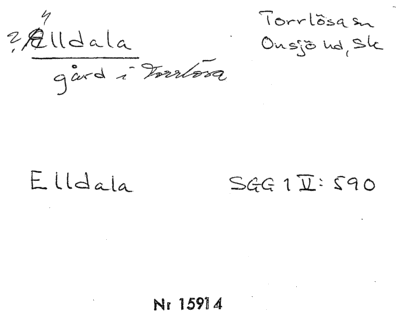 ? Elldala
gård i Torrlösa
Torrlösa sn
Onsjö hd, Sk
Elldala SGG 1 V: 590
Nr 15914